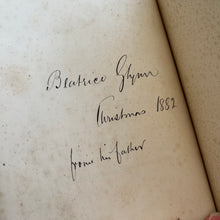 Beatrice Glynn
Christmas 1882
from his father